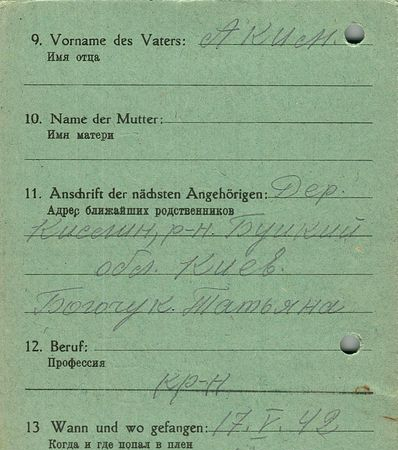 9. Vorname des Vaters: Аким.
Имя отца
10. Name der Mutter:
Имя матери
11. Anschrift der nächsten Angehörigen: Дер.
Адрес ближайших родственников
р-н. Буцкий
обл. Киев.
Богочук. Татьяна
12. Beruf:
Профессия
кр-н
13 Wann und wo gefangen: 17. V. 42
Когда и где попал в плен